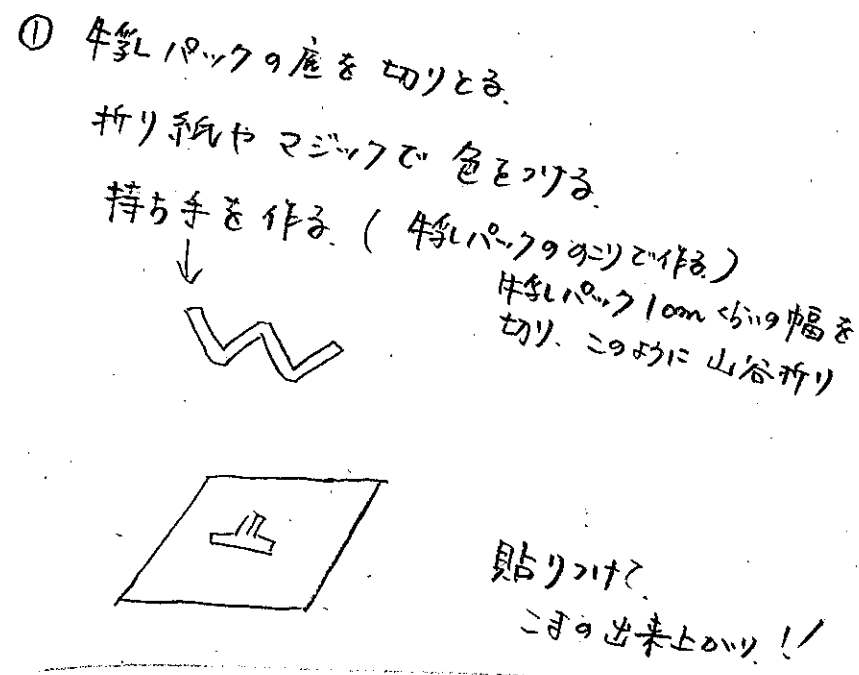 ① 牛乳パックの底を切りとる。
折り紙やマジックで色をつける。
持ち手を作る。(牛乳パックののこりで作る。)
牛乳パック1cmくらいの幅を
切り、このように山谷折り
貼りつけて、
こまの出来上がり!!